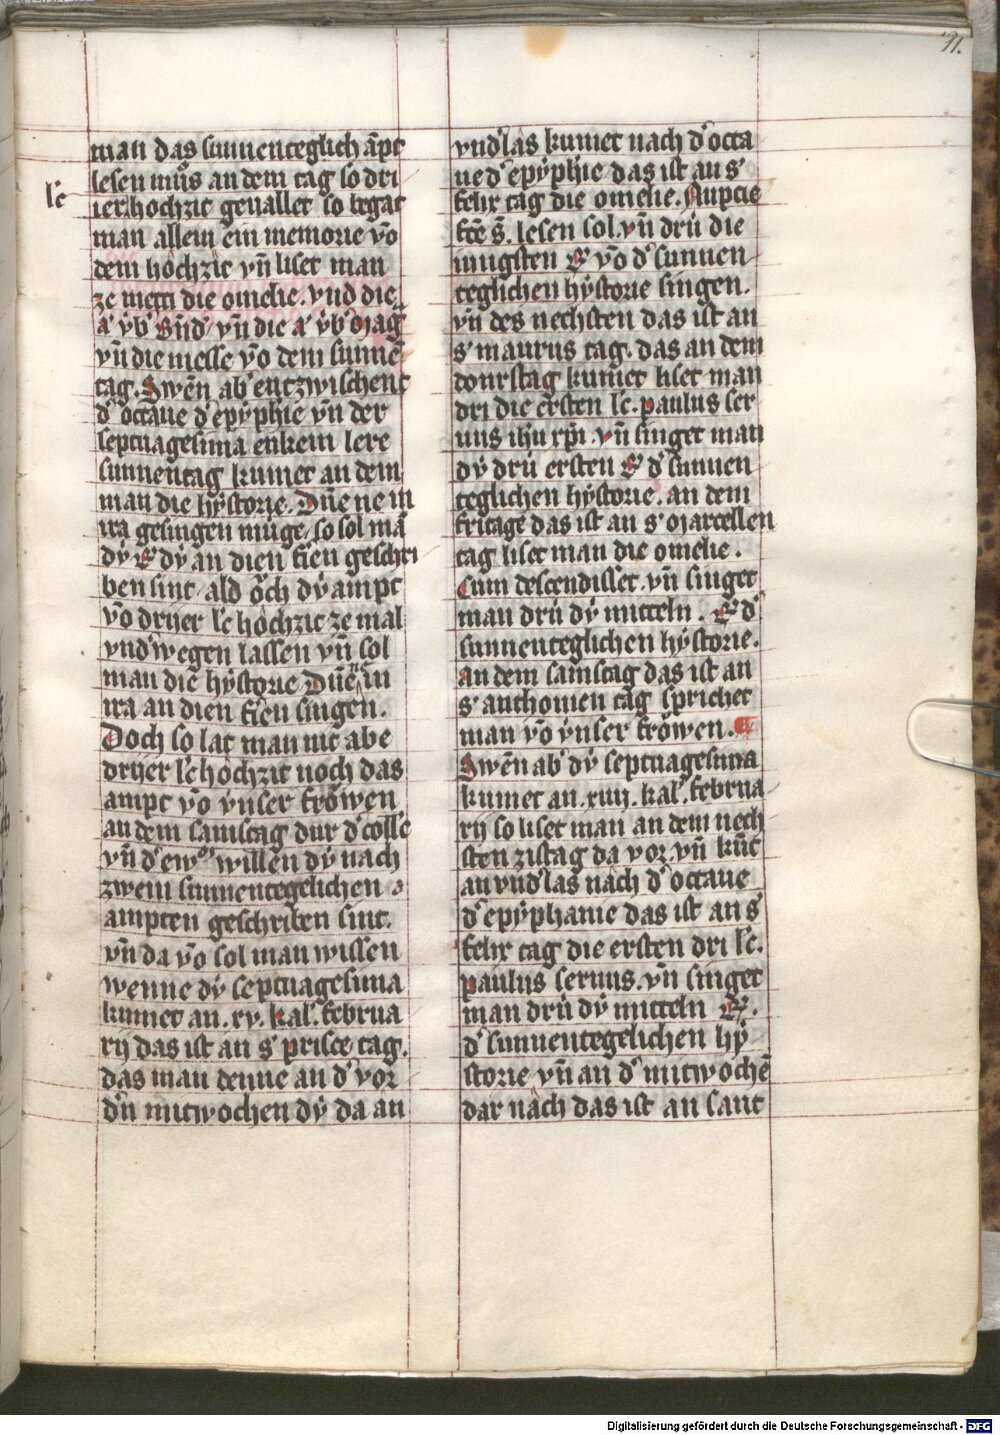 41.
man das sunnenteglich āpt
lesen můs an dem tag so dri
lc̄
ier hochzit geuallet so begat
man allein ein memorie vō
dem hochzit vn̄ liset man
ze metti die omelie. vnd die
a̛ v̛b Bn̄d vn̄ die a̛ v̛b mag
vn̄ die messe vō dem sunnē
tag. Swēn ab̛ entzwischent
d̛ octaue d̛ epyphie vn̄ der
septuagesima enkein lere
sunnentag kumet an dem
man die hystorie. Dn̄e ne in
ira gesingen muge, so sol mā
dy R̛ dy an dien f̄ien geschri
ben sint, ald öch dy ampt
vō drijer lc̄ hochzit ze mal
vnd wegen lassen vn̄ sol
man die hystorie Dn̄e ne in
ira an dien f̄ien singen.
Doch so lat man nit abe
drijer lc̄ hochzit noch das
ampt vō vnser fröwen
an dem samstag dur d̛ coll̄e
vn̄ d̛ willen dy nach
zwein sunnentegelichen
ampten geschriben sint.
vn̄ da vō sol man wissen
wenne dy septuagesima
kumet an. xv. kal̛. februa
rij das ist an s̛ prisce tag.
das man denne an d̛ vor
dn̄ mitwochen dy da an
vnd̛las kumet nach d̛ octa
ue d̛ epyphie das ist an s̛
felix tag die omelie. Nupcie
fc̄e s̄. lesen sol. vn̄ drü die
iungsten R̛ vō d̛ sunnen
teglichen hystorie singen.
vn̄ des nechsten das ist an
s̛ maurus tag. das an dem
donrstag kumet liset man
dri die ersten lc̄. paulus ser
uus ihu xp̄i. vn̄ singet man
dy drü ersten R̛ d̛ sunnen
teglichen hystorie. an dem
fritage das ist an s̛ marcellen
tag liset man die omelie.
Cum descendisset. vn̄ singet
man drü dy mitteln. R̛ d̛
sunnenteglichen hystorie.
an dem samstag das ist an
s̛ anthonien tag sprichet
man vō vnser fröwen.
Swēn ab̛ dy septuagesima
kumet an. xiiij. kal̛. februa
rij so liset man an dem nech
sten zistag da vor. vn̄ kūt
an vnd̛las nach d̛ octaue
d̛ epyphanie das ist an s̛
felix tag die ersten dri lc̄.
paulus seruus. vn̄ singet
man drü dy mitteln R̛.
d̛ sunnentegelichen hy
storie vn̄ an d̛ mitwochē
dar nach das ist an sant
Digitalisierung gefördert durch die Deutsche Forschungsgemeinschaft - DFG